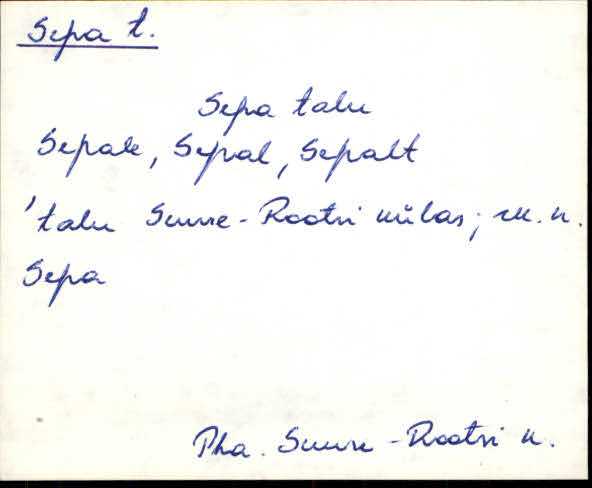 Sepa t.
Sepa talu
Sepale, Sepal, Sepalt
'talu Suure-Rootsi külas; rk. n.
Sepa
Pha. Suure-Rootsi k.